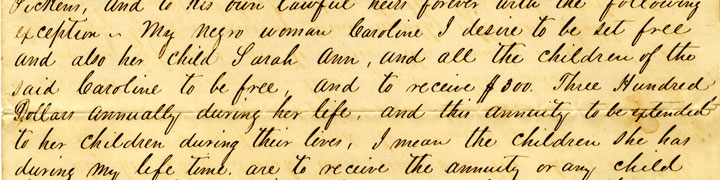 Pickens, and to his own lawful heirs forever with the following
exception ~ My negro woman Caroline I desire to be set free
and also her child Sarah Ann, and all the children of the
said Caroline to be free, and to receive $300. Three Hundred
Dollars annually during her life, and this annuity to be extended
to her children during their lives, I mean the children she has
during my life time. are to receive the annuity or any child